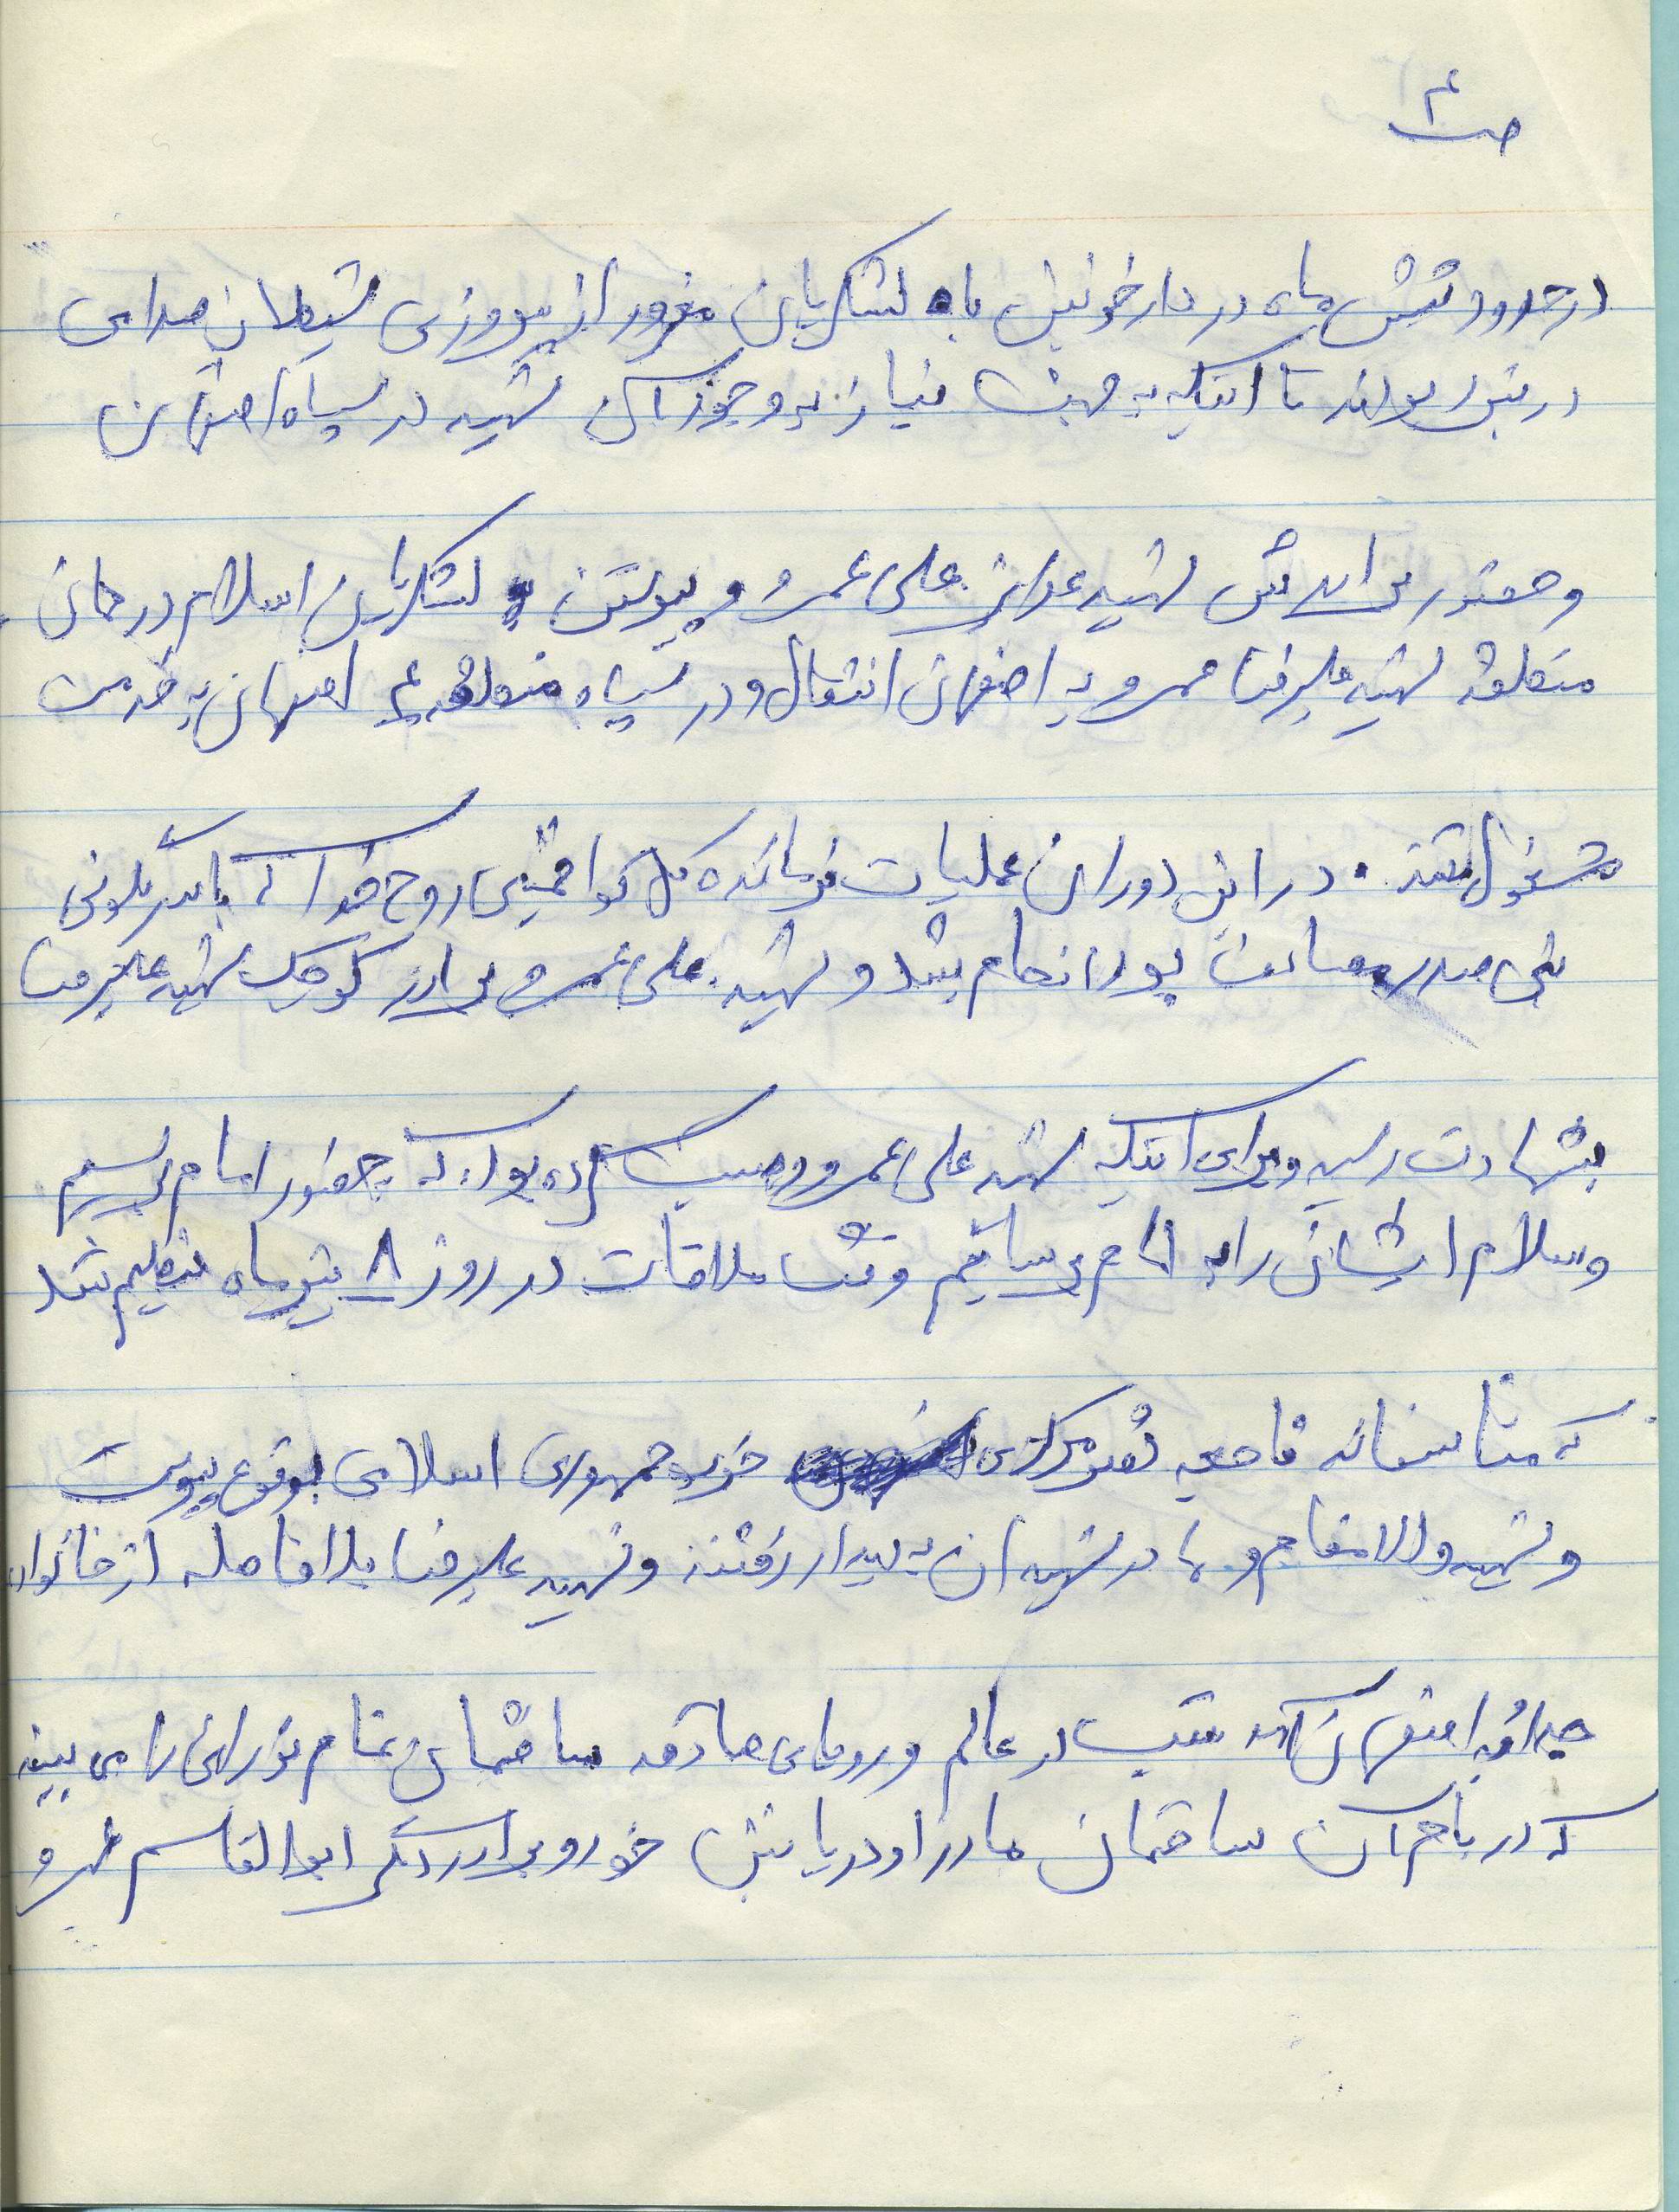 ص ۴
در حدود شش ماه در دارخوئین با لشکریان مغرور از پیروزی شیطان صدامی
در نبرد بودند تا اینکه به جهت نیاز به وجود آن شهید در سپاه اصفهان
و حضور برادرش شهید عزیز علی عمرو و پیوستن لشکریان اسلام در همان
منطقه شهید علیرضا عمرو به اصفهان انتقال و در سپاه منطقه ۲ اصفهان به خدمت
مشغول شدند. در این دوران عملیات فرمانده کل قوا خمینی روح خدا که با سرنگونی
بنی صدر مصادف بود انجام شد و شهید علی عمرو برادر کوچک شهید علیرضا
بشهادت رسید و برای اینکه شهید علی عمرو وصیت کرده بود که حضور امام برسیم
و سلام ایشان را به امام برسانیم وقت ملاقات در روز ۸ تیرماه تنظیم شد
که متأسفانه فاجعه دفتر مرکزی حزب جمهوری اسلامی بوقوع پیوست
و شهید والامقام و مادر شهیدان به دیدار رفتند و شهید علیرضا بلافاصله از خانواده
جدا و به اصفهان آمد شب در عالم و رویای صادقه ساختمان تمام نورانی را می بیند
که در بام آن ساختمان مادر او در پائین خود و برادر دیگر ابوالقاسم عمرو